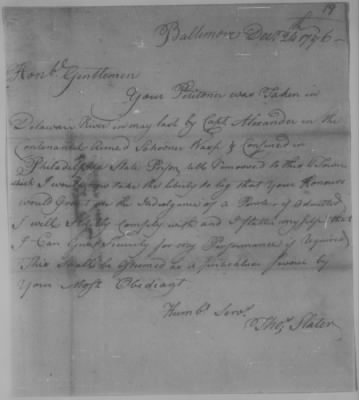 19
Baltimore Decr. 24th 1776—
Honbl. Gentlemen
Your Petitoner was Taken in
Delaware River in may last by Capt. Alexander in the
Contenantal Armed Schooner Wasp & Confined in
Philadelphia State Prison till Removed to this
which I would now take the Liberty to beg that Your Honours
would Grant me the Indulgence of a Parole if admitted
I will Strictly Comply with and I flatter myself that
I Can Give Security for my Performance if Required
This Shall be Esteemed as a particular favour by
Your Most Obediagt
Humbl. Servt.
Thos. Slater